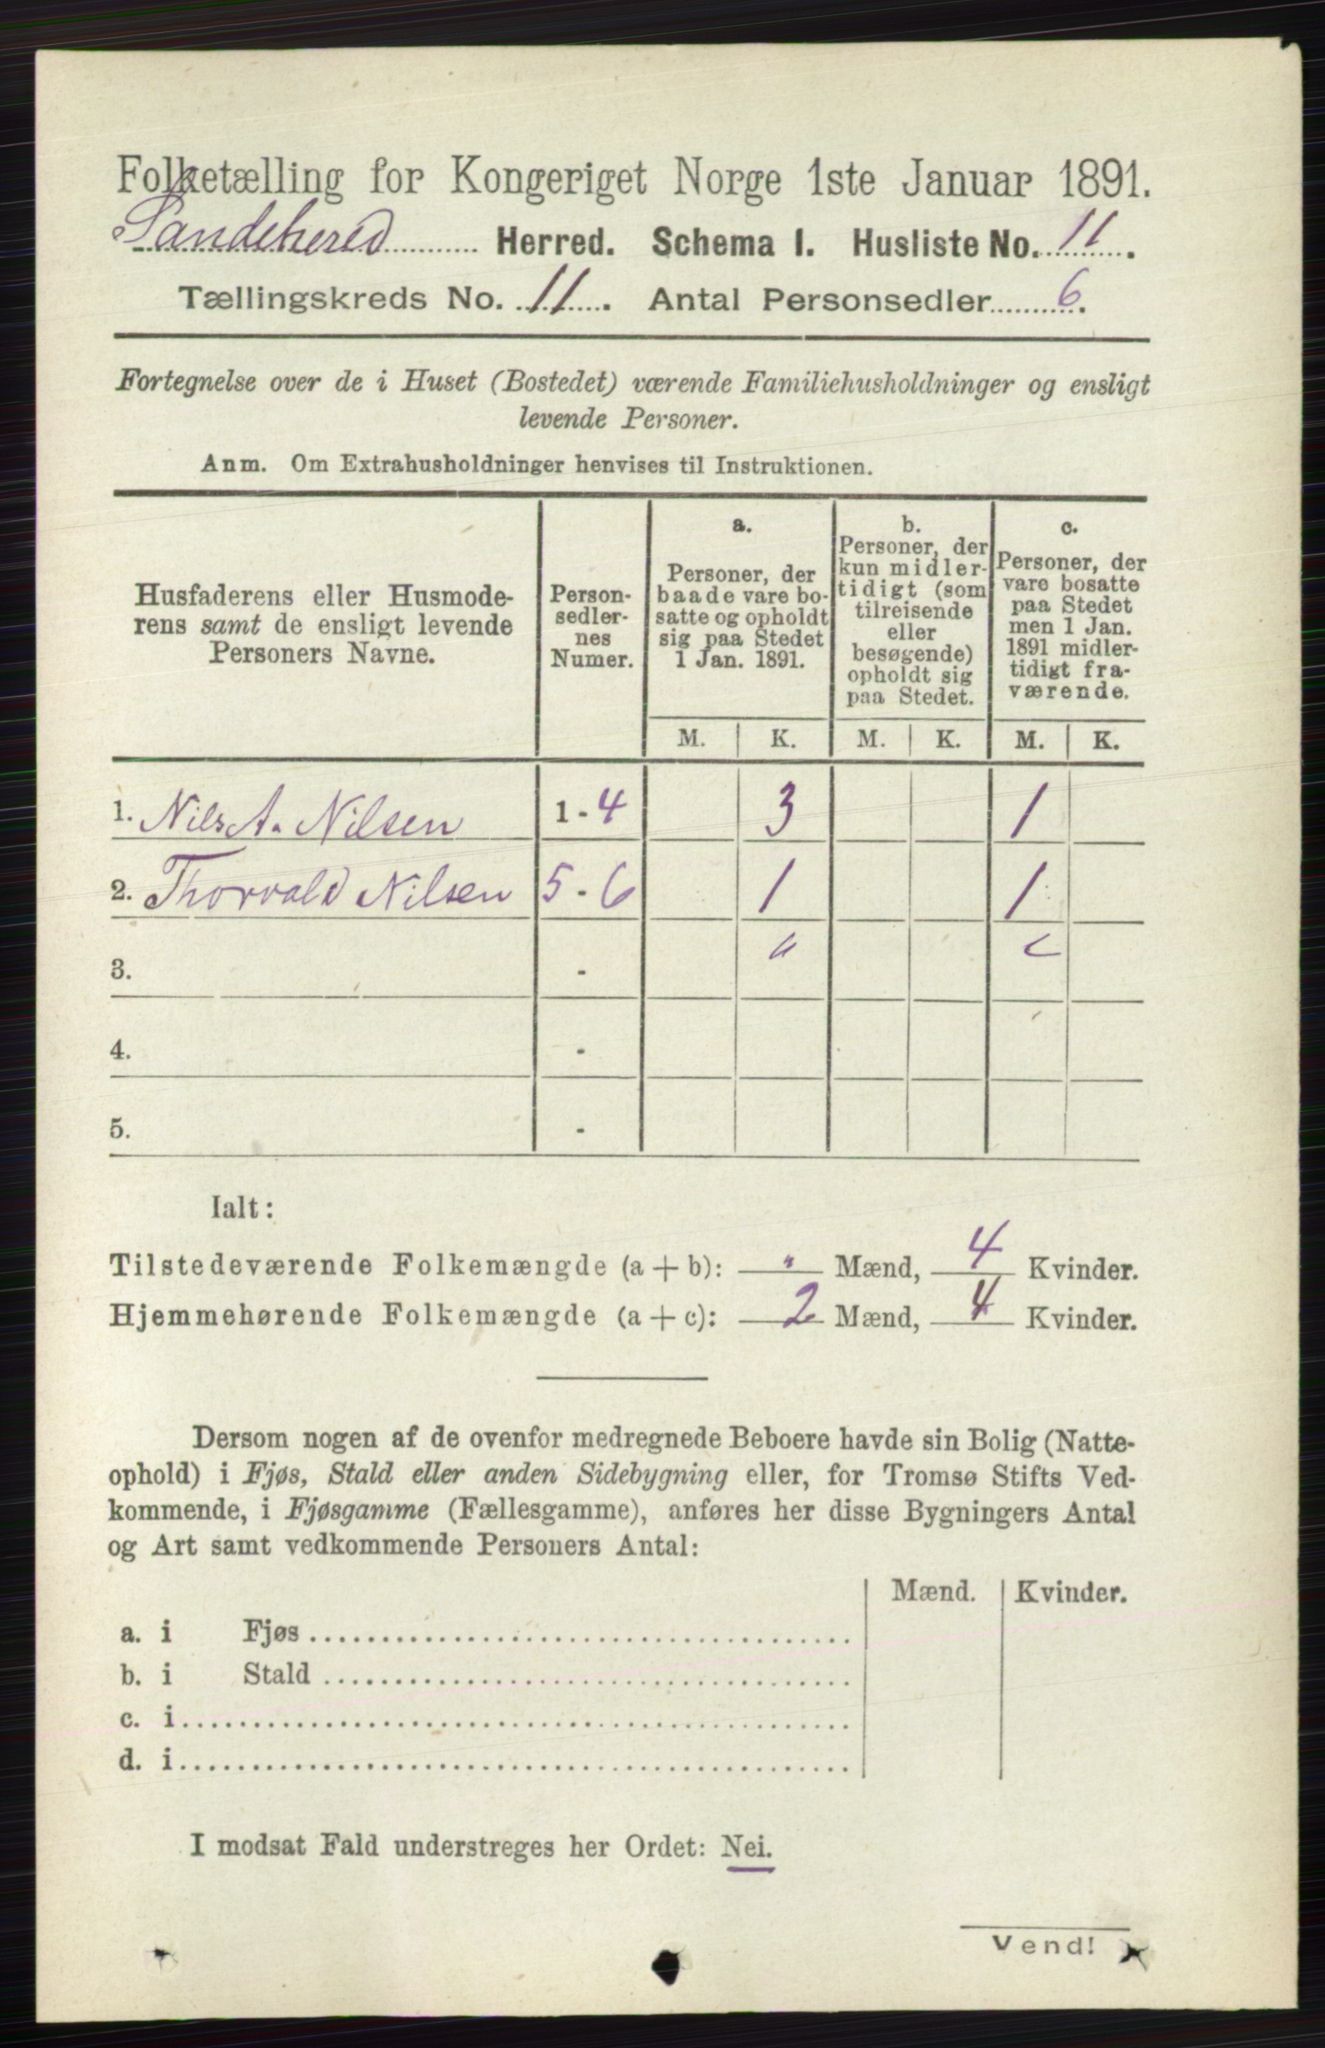 Folketælling for Kongeriget Norge 1ste Januar 1891.
Sandehered Herred. Schema I. Husliste No. 11.
Tællingskreds No. 11. Antal Personsedler 6.
Fortegnelse over de i Huset (Bostedet) værende Familiehusholdninger og ensligt
levende Personer.
Anm. Om Extrahusholdninger henvises til Instruktionen.
Husfaderens eller Husmode-
rens samt de ensligt levende
Personers Navne.
Person-
sedler-
nes
Numer.
a.
Personer, der
baade vare bo-
satte og opholdt
sig paa Stedet
1 Jan. 1891.
b.
Personer, der
kun midler-
tidigt (som
tilreisende
eller
besøgende)
opholdt sig
paa Stedet.
c.
Personer, der
vare bosatte
paa Stedet
men 1 Jan.
1891 midler-
tidigt fra-
værende.
M. K. M. K. M. K.
1. Nils A. Nilsen 1 - 4 3 1
2. Thorvald Nilsen 5 - 6 1 1
3. -
4. -
5. -
Ialt:
Tilstedeværende Folkemængde (a + b): " Mænd, 4 Kvinder.
Hjemmehørende Folkemængde (a + c): 2 Mænd, 4 Kvinder.
Dersom nogen af de ovenfor medregnede Beboere havde sin Bolig (Natte-
ophold) i Fjøs, Stald eller anden Sidebygning eller, for Tromsø Stifts Ved-
kommende, i Fjøsgamme (Fællesgamme), anføres her disse Bygningers Antal
og Art samt vedkommende Personers Antal:
Mænd. Kvinder.
a. i Fjøs
b. i Stald
c. i
d. i
I modsat Fald understreges her Ordet: Nei.
Vend!